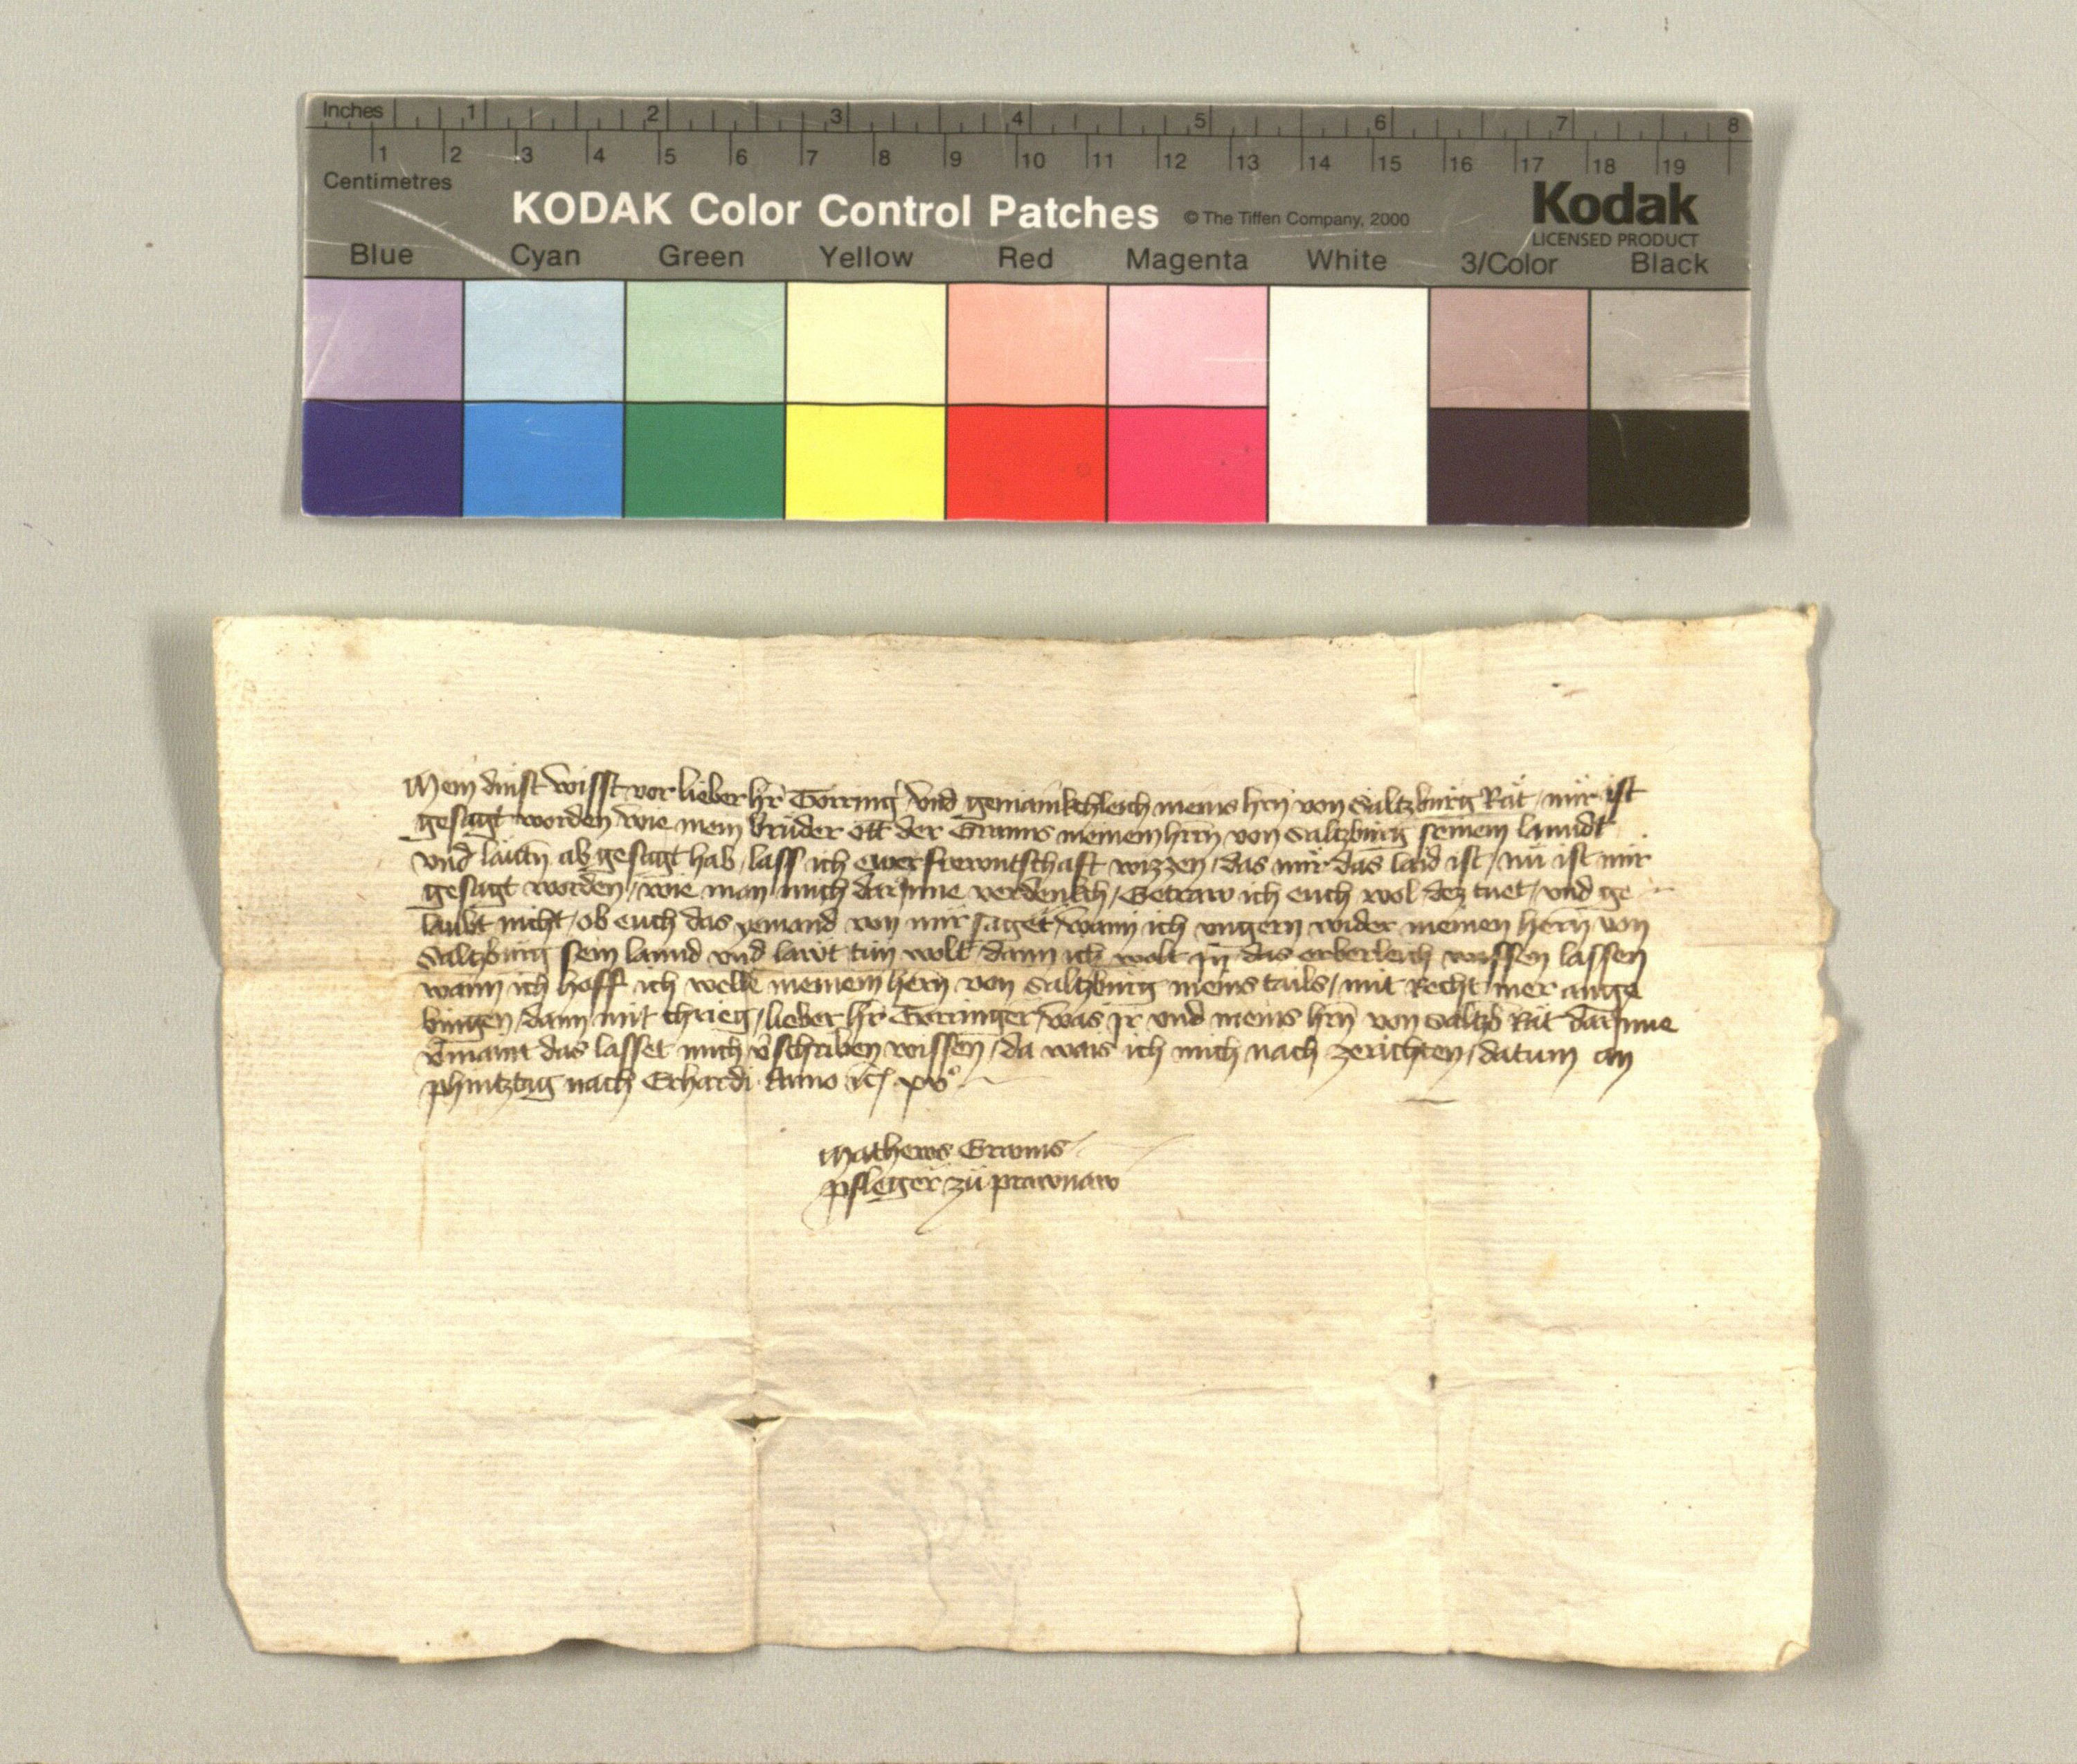 Inches 1 2 3 4 5 6 7 8
1 2 3 4 5 6 7 8 9 10 11 12 13 14 15 16 17 18 19
Centimetres
KODAK Color Control Patches © The Tiffen Company, 2000 Kodak
LICENSED PRODUCT
Blue Cyan Green Yellow Red Magenta White 3/Color Black
Mein dinst wisst vor lieber hr Törring vnd gemainkchleich meins hrn von Saltzburg Rät mir ist
gesagt worden wie mein bruder ott der Grans meinem hern von Saltzburg seinem lanndt
vnd läwtn ab gesagt hab lass ich ewer frewntschaft wizzen das mir das laid ist nu ist mir
gesagt worden wie man mich darInne verdenkch Getraw ich euch wol dez tuet vnd ge
laubt nicht ob euch das yemand von mir saget wann ich vngern wider meinen hern von
Saltzburg sein lannd vnd läwt tün wolt dann ich wolt in das erberleich wissen lassen
wann ich hoff ich welle meinem hern von Saltzburg meins tails mit Recht mer ange
bingen dann mit chrieg lieber hr Törringer was Ir vnd meins hrn von Saltzb Rät darInne
vermaint das lasset mich vschriben wissen da wais ich mich nach zerichten datum an
phintztag nach Erhardi Anno xvº
Mathews Grans
pfleger zü prawnaw